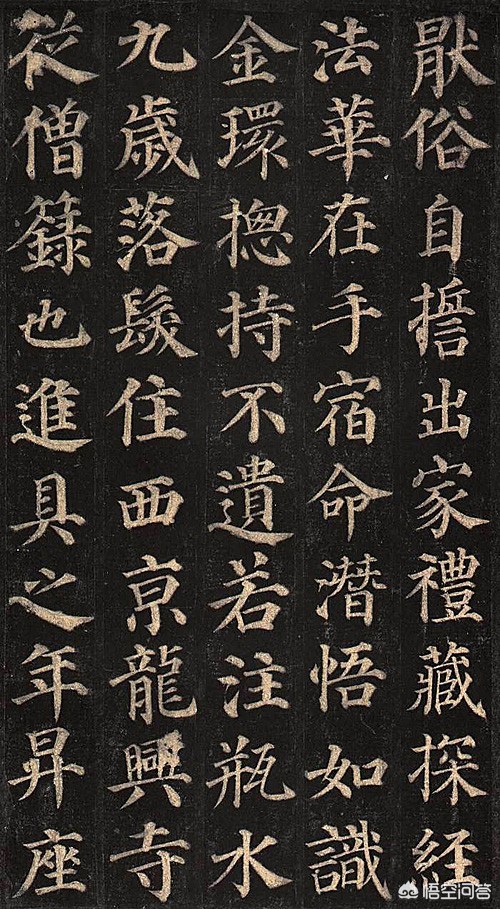 猒俗自撎出家禮藏探經
法華在手宿命潛悟如識
金環揔持不遺若注瓶水
九歲落髮住西京龍興寺
從僧籙也進具之年昇座
悟空问答